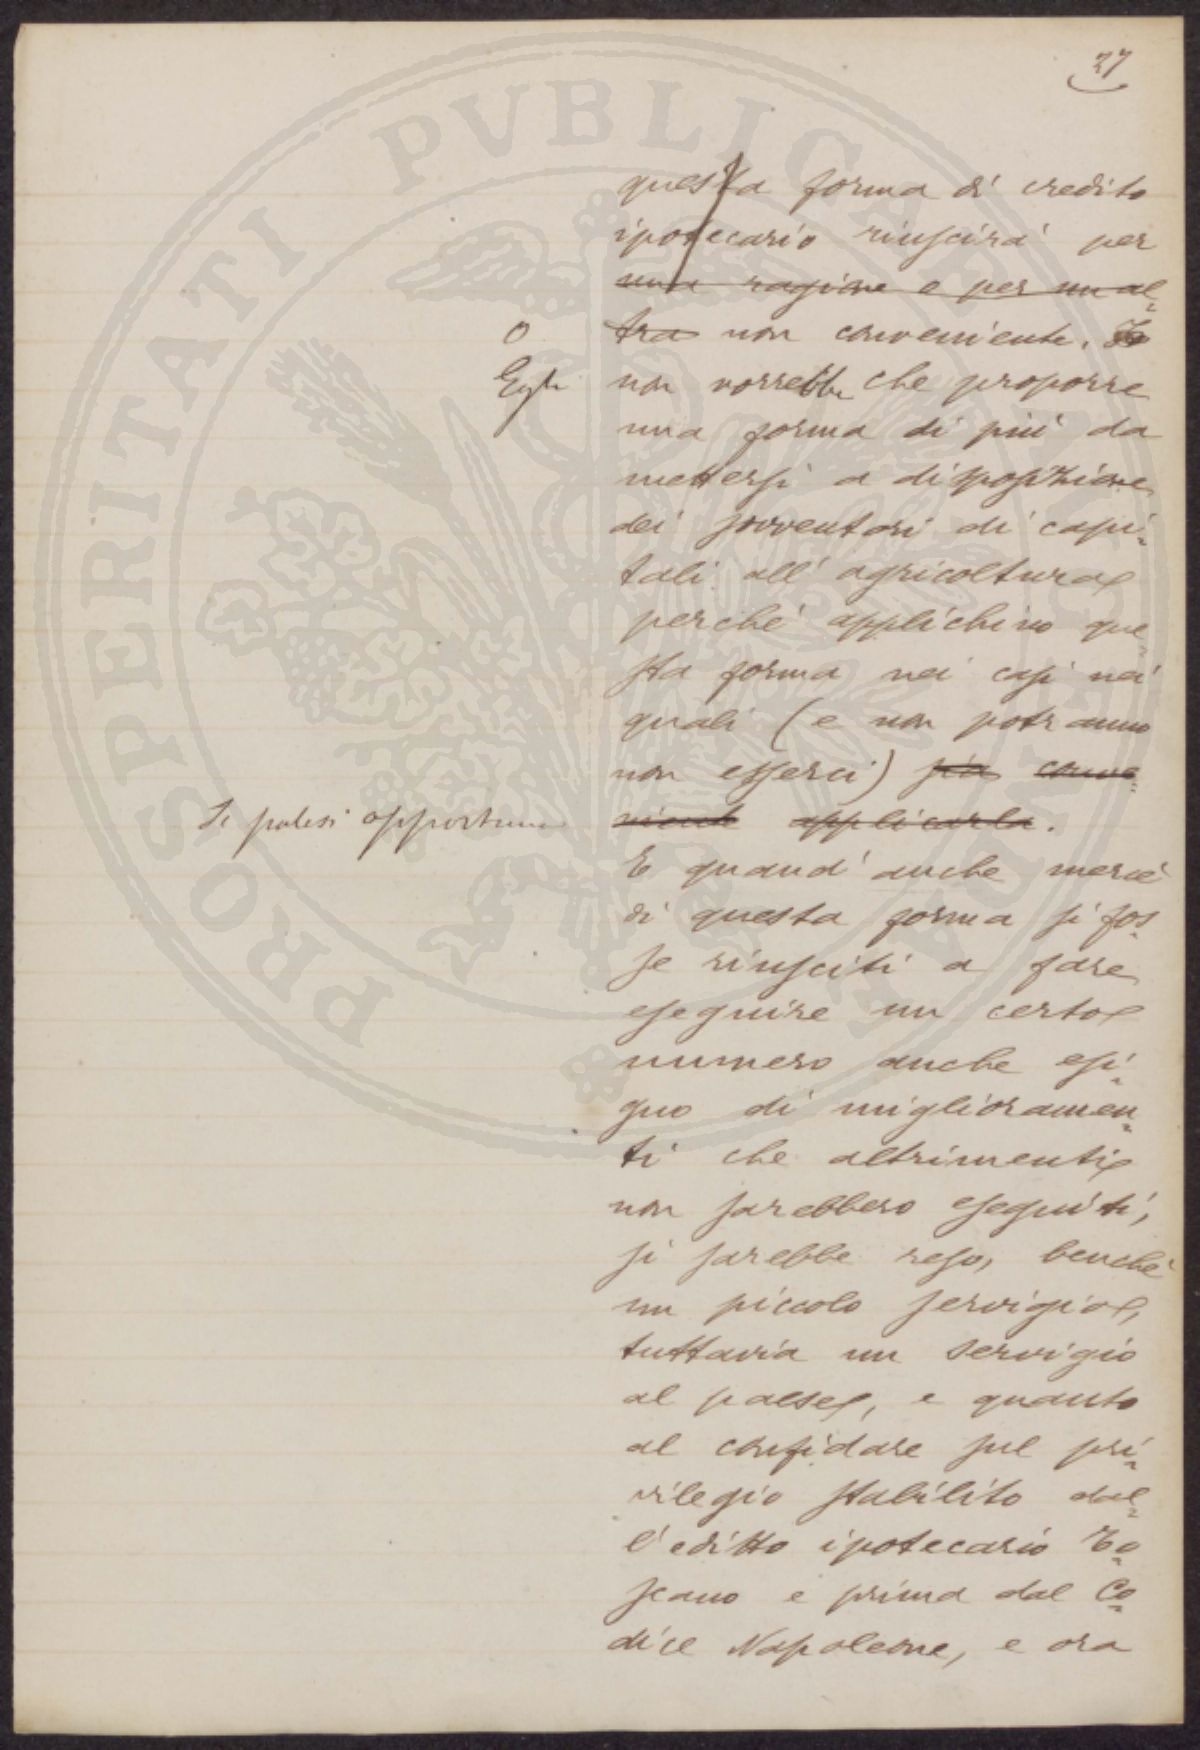 27
questa forma di credito
ipotecario riuscirà per
una ragione e per un al=
tra non conveniente.
O
Egli
non vorrebbe che proporre
una forma di più da
mettersi a disposizione
dei sovventori di capi=
tali all'agricoltura
perché applichino que
sta forma nei casi nei
quali (e non potranno
non esserci) sia conve=
niente applicarla.
Si palesi opportuna
E quand'anche mercè
di questa forma si fos=
se riusciti a fare
eseguire un certo
numero anche esi=
guo di miglioramen=
ti che altrimenti
non sarebbero eseguiti,
si sarebbe reso, benché
un piccolo servigio,
tuttavia un servigio
al paese, e quanto
al confidare sul pri=
vilegio stabilito dal=
l'editto ipotecario To=
scano e prima dal Co=
dice Napoleone, e ora
PROSPERITATI PVBLICAE